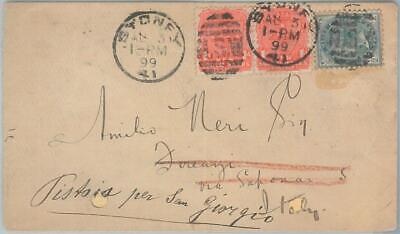 SYDNEY
JA 3
1-PM
99
41
SYDNEY
JA 3
1-PM
99
41
NSW
Amilio Neri Sig
Firenze
via
Pistoia per San Giorgio
Italy